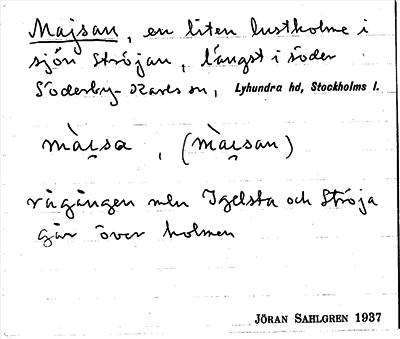 Majsan, en liten lustholme i
sjön Ströjan, längst i söder
Söderby-Karls sn, Lyhundra hd, Stockholms l.
màɪ̯sa, (màɪ̯san)
rågången mln Igelsta och Ströja
går över holmen
JÖRAN SAHLGREN 1937